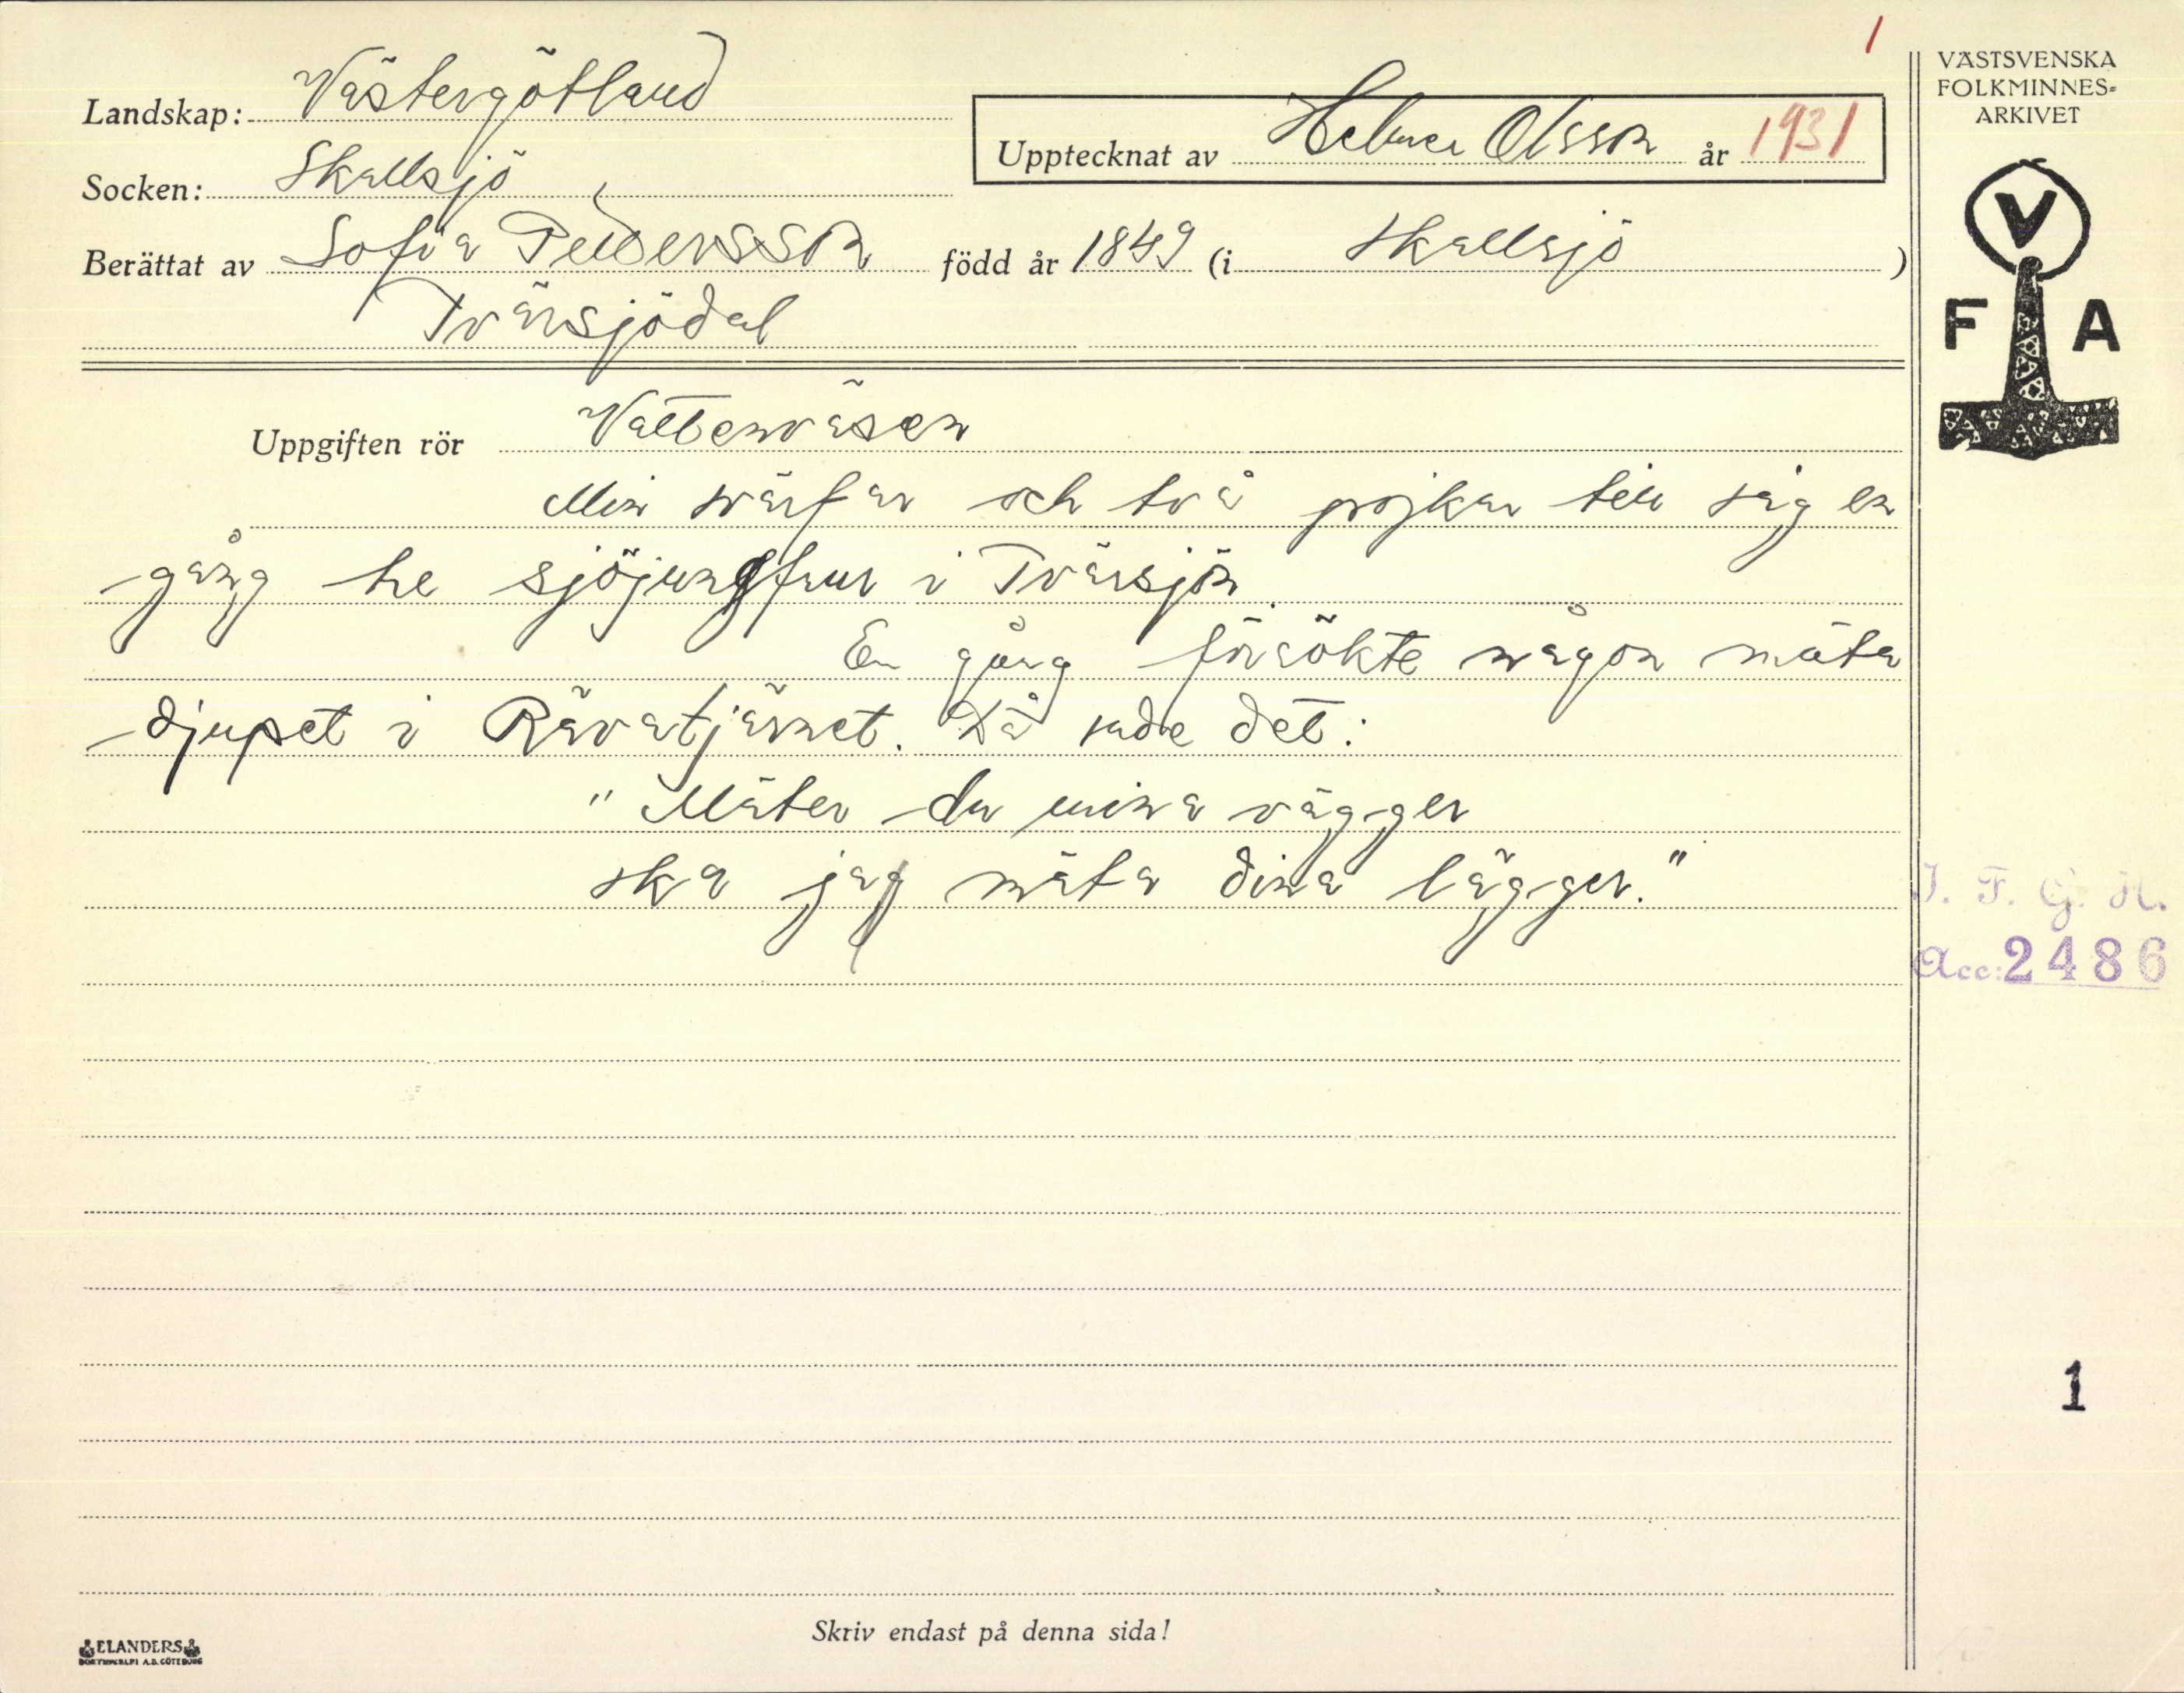 1
Landskap: Västergötland
Socken: Skallsjö
Upptecknat av Helmer Olsson år 1931
Berättat av Sofia Pettersson född år 1849 (i Skallsjö)
Tvärsjödal
VÄSTSVENSKA
FOLKMINNES-
ARKIVET
V
F A
Uppgiften rör Vattenväsen
Min svärfar och två pojkar såg en
gång tre sjöjungfrur i Tvärsjön.
En gång försökte någon mäta
djupet i Rävatjärnet. Då sade det:
"Mäter du mina vägger
ska jag mäta dina lägger."
I. F. G. H.
Acc: 2486
1
Skriv endast på denna sida!
ELANDERS
BOKTRYCKERI A.B. GÖTEBORG